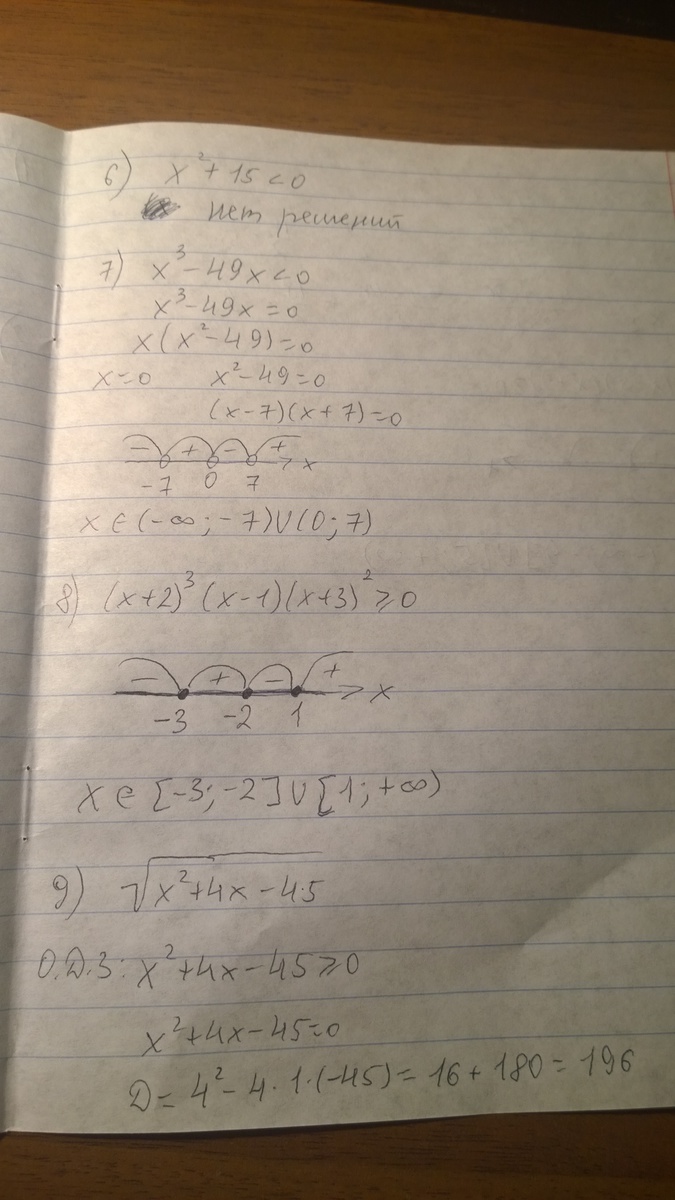 6) x²+15<0
нет решений
7) x³-49x<0
x³-49x=0
x(x²-49)=0
x=0 x²-49=0
(x-7)(x+7)=0
- + - + x
-7 0 7
x∈(-∞;-7)∪(0;7)
8) (x+2)³(x-1)(x+3)²⩾0
- + - + x
-3 -2 1
x∈[-3;-2]∪[1;+∞)
9) √x²+4x-45
О.Д.З: x²+4x-45⩾0
x²+4x-45=0
D=4²-4·1·(-45)=16+180=196